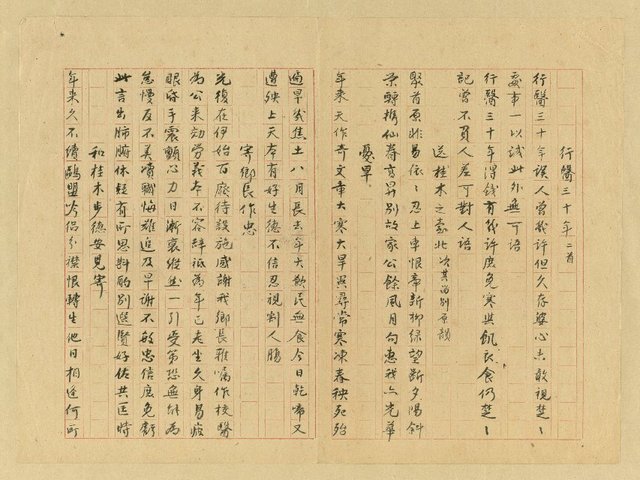 行醫三十年 二首
行醫三十年誤人曾幾許但久存婆心未敢視楚〻
妄事一以誠此外無可语
行醫三十年得錢有幾許庶免寒與飢衣食何楚〻
記曾不醫人差可對人語
送桂木之臺北 次其留別原韻
聚首原非易依〻忍上車恨帝新柳绿望斷夕陽斜
榮轉携仙眷言昇別故家公餘風月句惠我六光華
憂旱
年来天作奇文章大寒大旱異尋常寒凍春秧死殆
遍旱幾焦土八月長去年大歉民無食今日乾啼又
遭殃上天本有好生德不信忍視割人腸
寄鄉長作忠
光復在伊始百廢待設施感謝我鄉長雅囑作校醫
為公来効勞義本不容辭祇為年已老生久身易疲
眼昏手震顫心力日漸衰縱無一引受第恐無能為
怠慢反不美瀆職悔難追及早謝不敏忠信庶免虧
此言出肺腑休轻有所思料酌別選賢好佐共匡時
和桂木步德安見寄
年来久不續鷗盟吟侶分襟恨轉生他日相逢何所